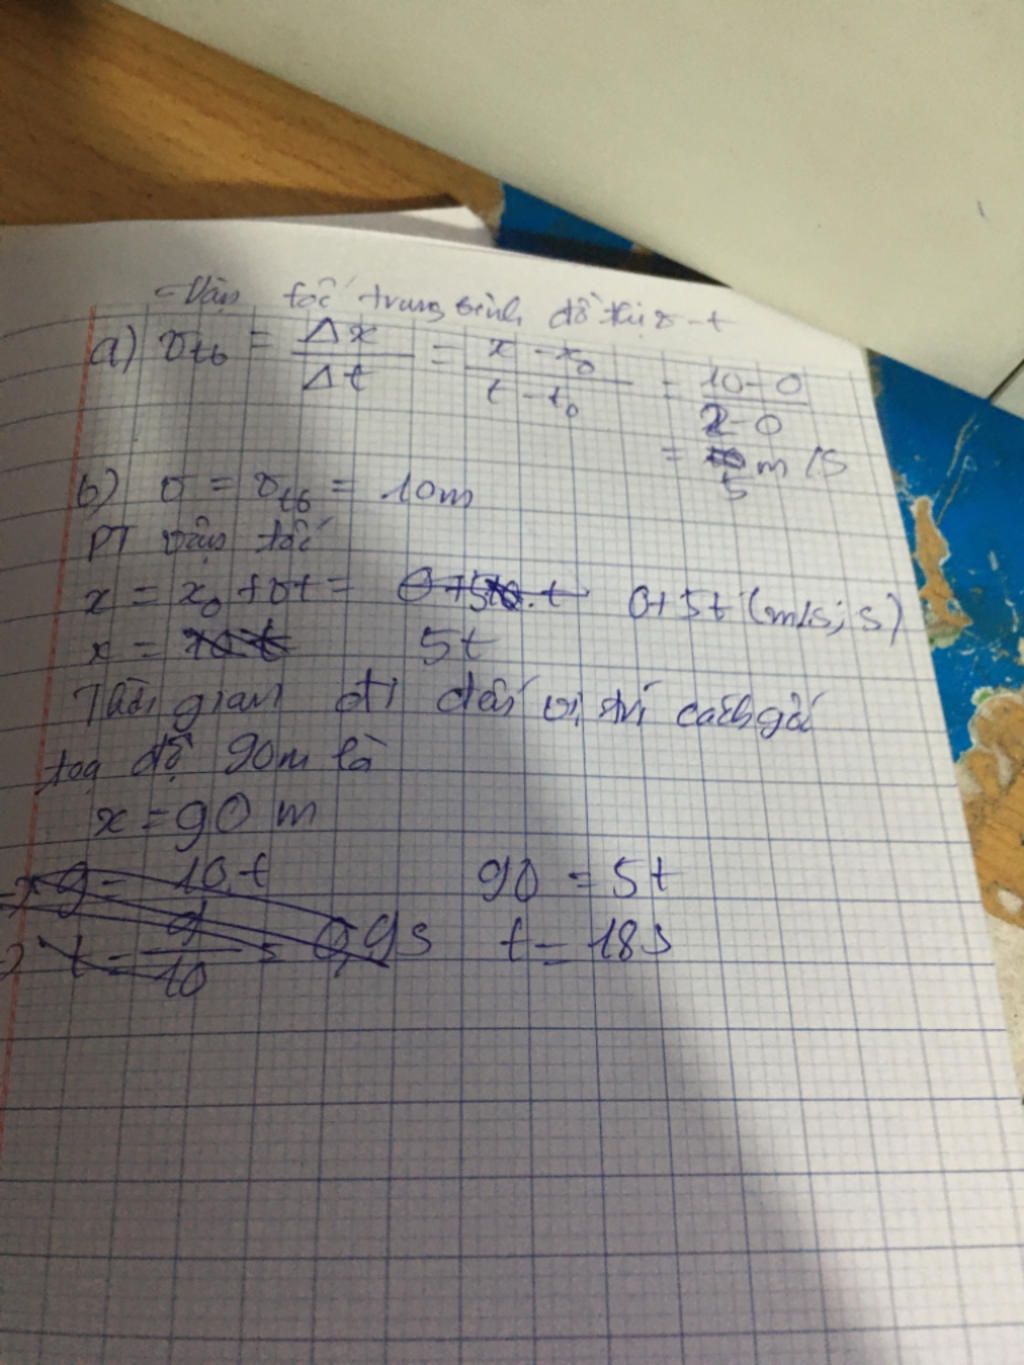 - Vận tốc trung bình đồ thị v - t
a) vtb = Δx / Δt = x - x0 / t - t0 = 10 - 0 / 2 - 0
= 5 m/s
b) v = vtb = 10m
PT vận tốc
x = x0 + vt = 0 + 5t (m/s; s)
x = 5t
Thời gian đi đến vị trí cách gốc
toạ độ 90m là
x = 90 m
90 = 5t
t = 18s